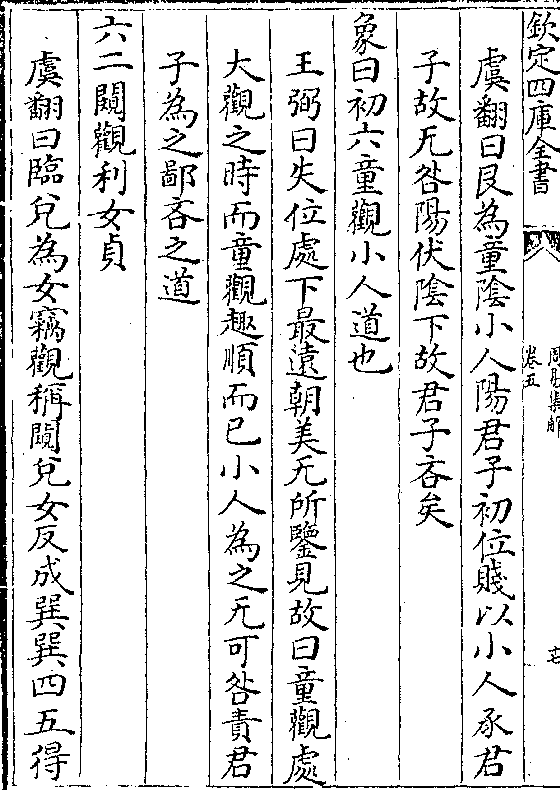 欽定四庫全書
周易集解
卷五
虞翻曰艮為童陰小人陽君子初位賤以小人承君
子故无咎陽伏陰下故君子吝矣
象曰初六童觀小人道也
王弼曰失位處下最遠朝美无所鑒見故曰童觀處
大觀之時而童觀趣順而已小人為之无可咎責君
子為之鄙吝之道
六二闚觀利女貞
虞翻曰臨兌為女竊觀稱闚兌女反成巽巽四五得